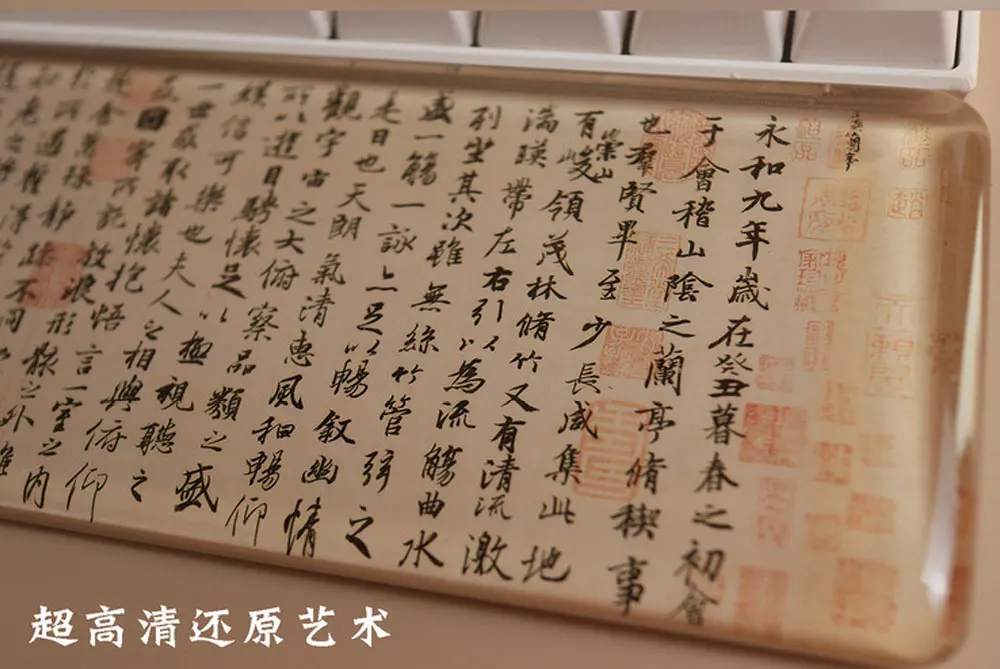 永和九年歲在癸丑暮春之初會
于會稽山陰之蘭亭脩稧事
也羣賢畢至少長咸集此地
有崇山峻領茂林脩竹又有清流激
湍暎帶左右引以為流觴曲水
列坐其次雖無絲竹管弦之
盛一觴一詠亦足以暢敘幽情
是日也天朗氣清惠風和暢仰
觀宇宙之大俯察品類之盛
所以遊目騁懷足以極視聽之
娛信可樂也夫人之相與俯仰
一世或取諸懷抱悟言一室之內
或因寄所託放浪形骸之外雖
趣舍萬殊靜躁不同
於所遇蹔得
老之
超高清还原艺术